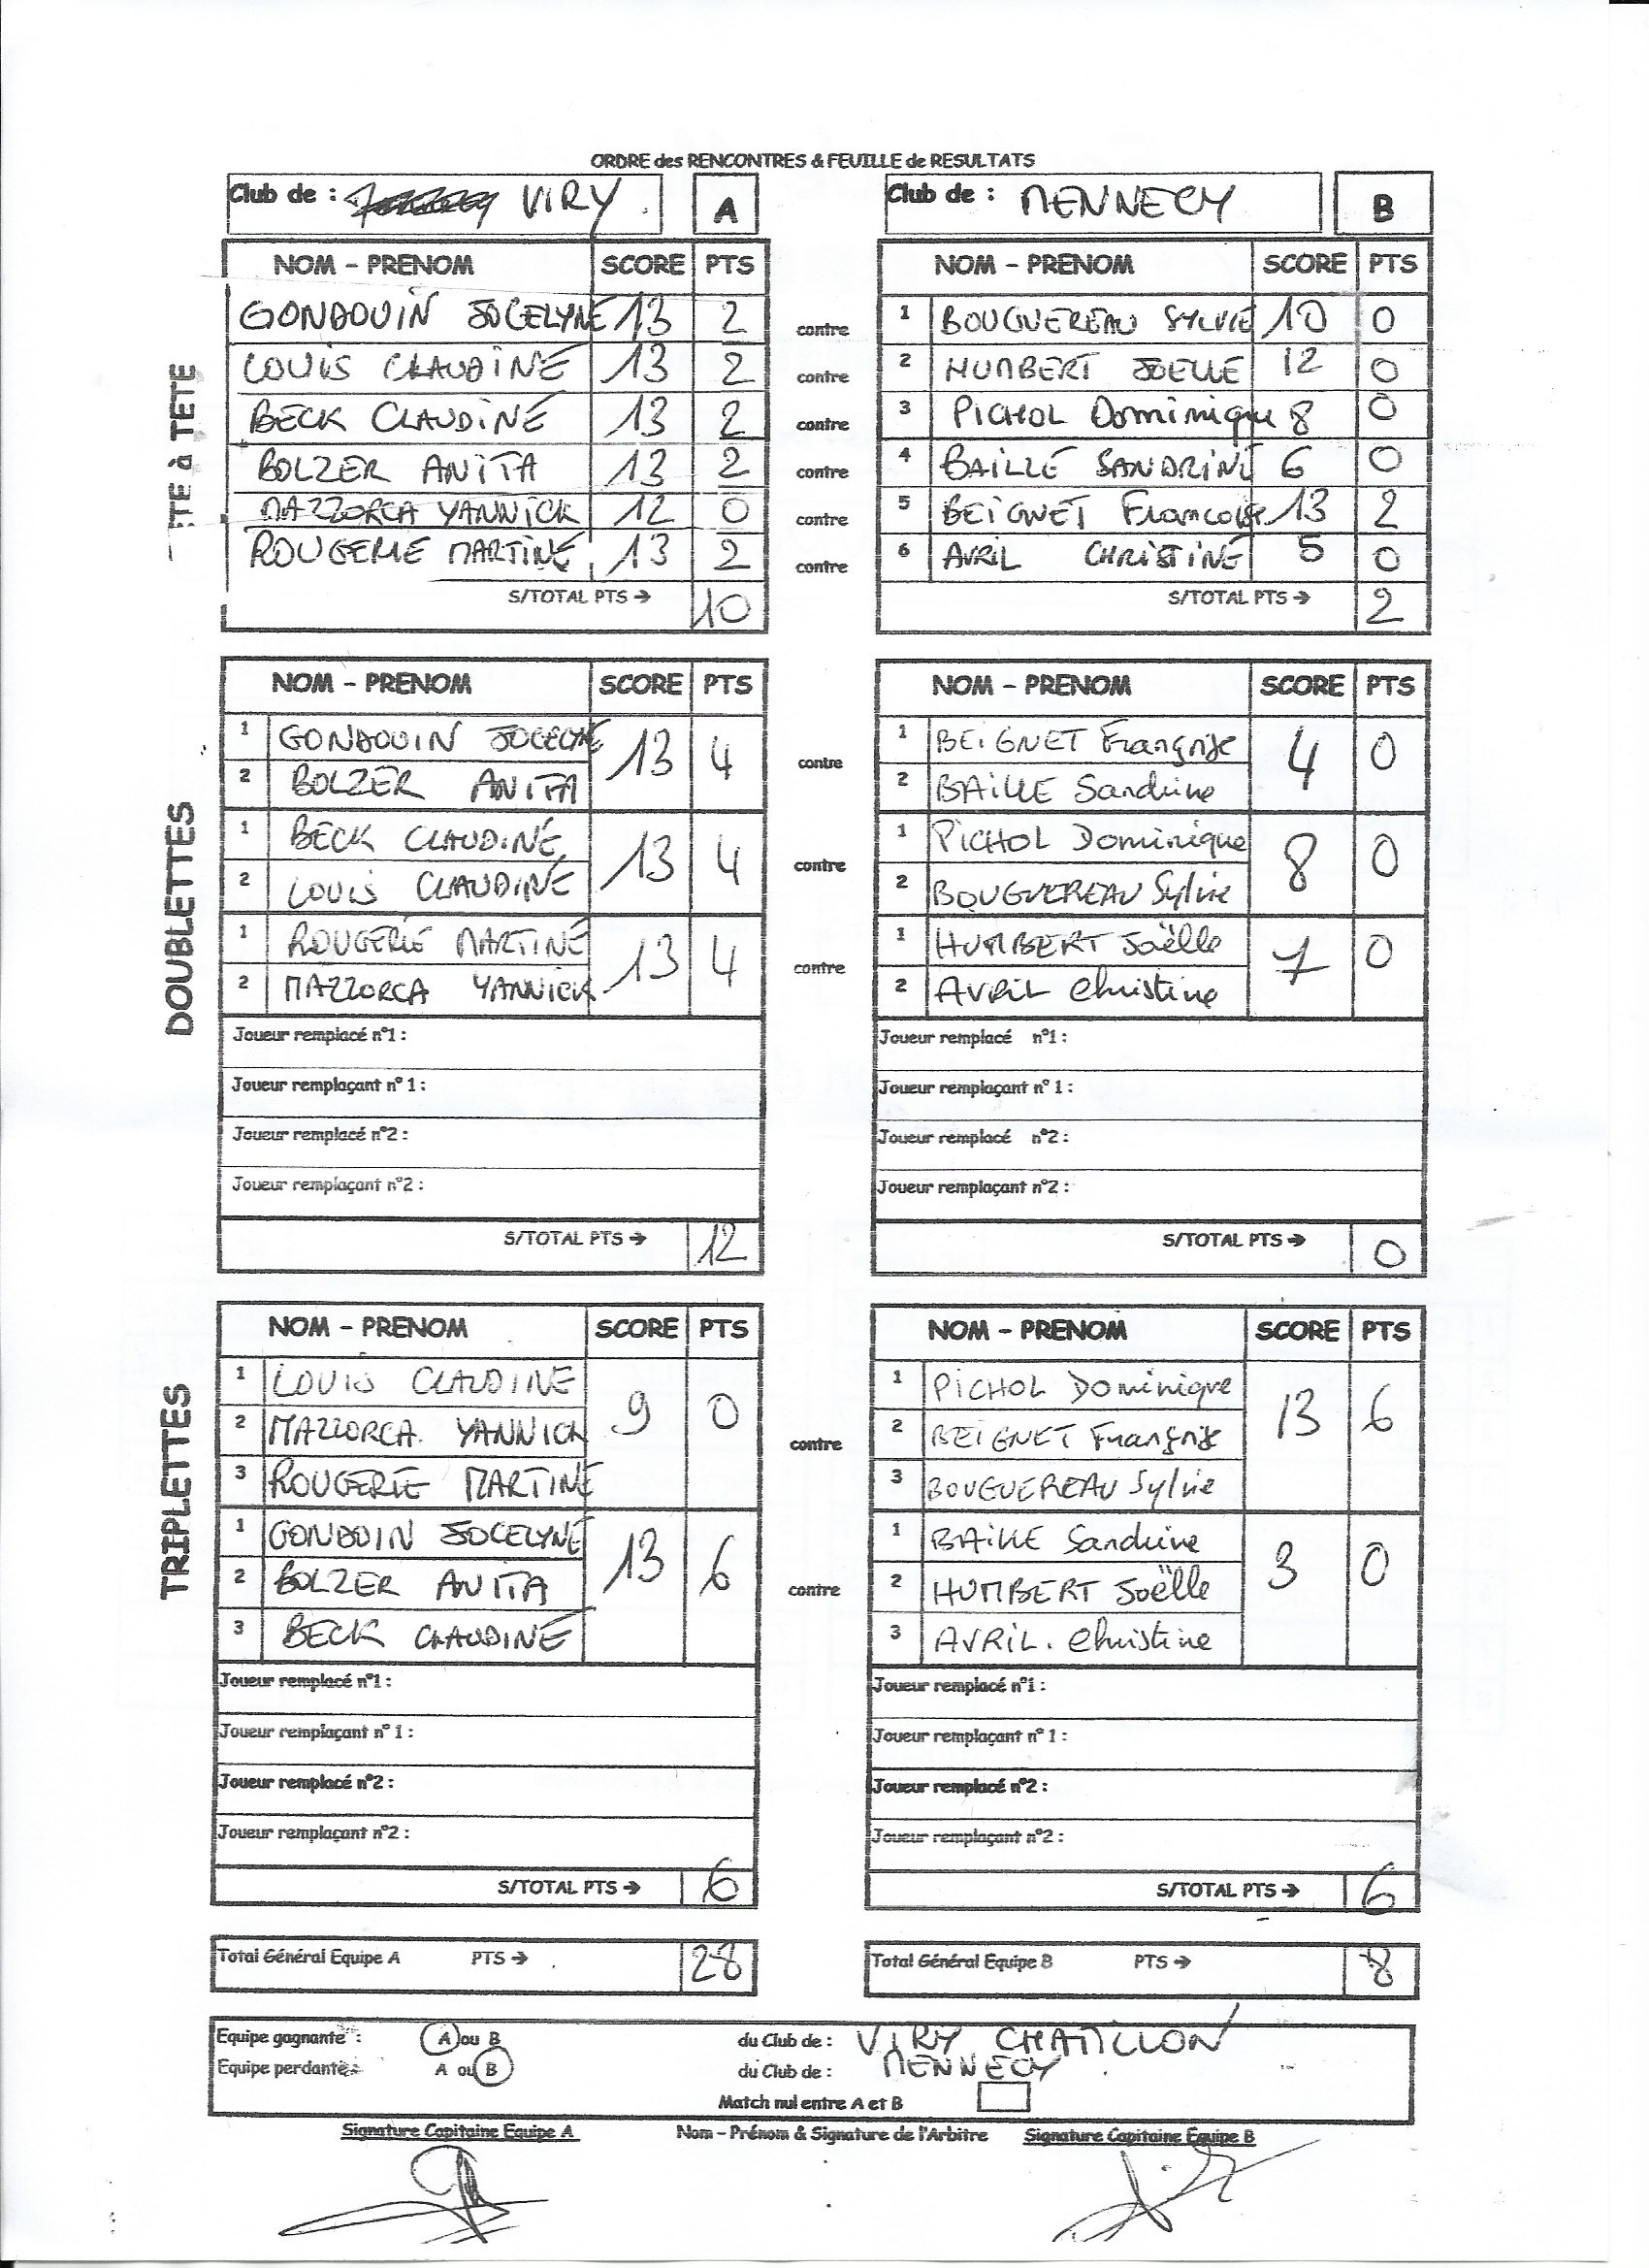 ORDRE des RENCONTRES & FEUILLE de RESULTATS
Club de : VIRY A Club de : MENNECY B
NOM - PRENOM SCORE PTS NOM - PRENOM SCORE PTS
TETE à TETE
GONDOUIN JOCELYNE 13 2 contre 1 BOUGUEREAU SYLVIE 10 0
LOUIS CLAUDINE 13 2 contre 2 HUMBERT JOELLE 12 0
BECK CLAUDINE 13 2 contre 3 PICHOL Dominique 8 0
BOLZER ANITA 13 2 contre 4 BAILLE SANDRINE 6 0
MAZZORCA YANNICK 12 0 contre 5 BEIGNET Francoise 13 2
ROUGERIE MARTINE 13 2 contre 6 AVRIL CHRISTINE 5 0
S/TOTAL PTS → 10 S/TOTAL PTS → 2
DOUBLETTES
NOM - PRENOM SCORE PTS NOM - PRENOM SCORE PTS
1 GONDOUIN JOCELYNE 13 4 contre 1 BEIGNET Françoise 4 0
2 BOLZER ANITA 2 BAILLE Sandrine
1 BECK CLAUDINE 13 4 contre 1 PICHOL Dominique 8 0
2 LOUIS CLAUDINE 2 BOUGUEREAU Sylvie
1 ROUGERIE MARTINE 13 4 contre 1 HUMBERT Joëlle 7 0
2 MAZZORCA YANNICK 2 AVRIL Christine
Joueur remplacé n°1 : Joueur remplacé n°1 :
Joueur remplaçant n° 1 : Joueur remplaçant n° 1 :
Joueur remplacé n°2 : Joueur remplacé n°2 :
Joueur remplaçant n°2 : Joueur remplaçant n°2 :
S/TOTAL PTS → 12 S/TOTAL PTS → 0
TRIPLETTES
NOM - PRENOM SCORE PTS NOM - PRENOM SCORE PTS
1 LOUIS CLAUDINE 9 0 contre 1 PICHOL Dominique 13 6
2 MAZZORCA YANNICK 2 BEIGNET Françoise
3 ROUGERIE MARTINE 3 BOUGUEREAU Sylvie
1 GONDOIN JOCELYNE 13 6 contre 1 BAILLE Sandrine 3 0
2 BOLZER ANITA 2 HUMBERT Joëlle
3 BECK CLAUDINE 3 AVRIL. Christine
Joueur remplacé n°1 : Joueur remplacé n°1 :
Joueur remplaçant n° 1 : Joueur remplaçant n° 1 :
Joueur remplacé n°2 : Joueur remplacé n°2 :
Joueur remplaçant n°2 : Joueur remplaçant n°2 :
S/TOTAL PTS → 6 S/TOTAL PTS → 6
Total Général Equipe A PTS → 28 Total Général Equipe B PTS → 8
Equipe gagnante : A ou B du Club de : VIRY CHATILLON
Equipe perdante : A ou B du Club de : MENNECY
Match nul entre A et B
Signature Capitaine Equipe A Nom - Prénom & Signature de l'Arbitre Signature Capitaine Equipe B